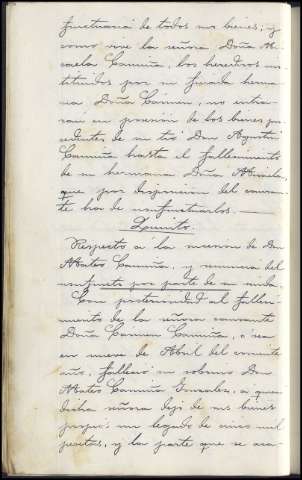 fructuaria de todos sus bienes; y
como vive la señora Doña Mi-
caela Camiña, los herederos ins-
tituidos por su finada herma-
na Doña Carmen, no entra-
ran en posesión de los bienes pro-
cedentes de su tio Don Agustin
Camiña hasta el fallecimiento
de su hermana Doña Micaela,
que por disposicion del causan-
te ha de usufructuarlos.
Quinto.
Respecto a la mesión de Don
Mateo Camiña, y renuncia del
usufructo por parte de su viuda.
Con posterioridad al falleci-
miento de la señora causante
Doña Carmen Camiña, o sea
en nueve de Abril del corriente
año, falleció su sobrino Don
Mateo Camiña Gonzalez, a quien
dicha señora dejó de sus bienes
propios un legado de cinco mil
pesetas, y la parte que se aca-